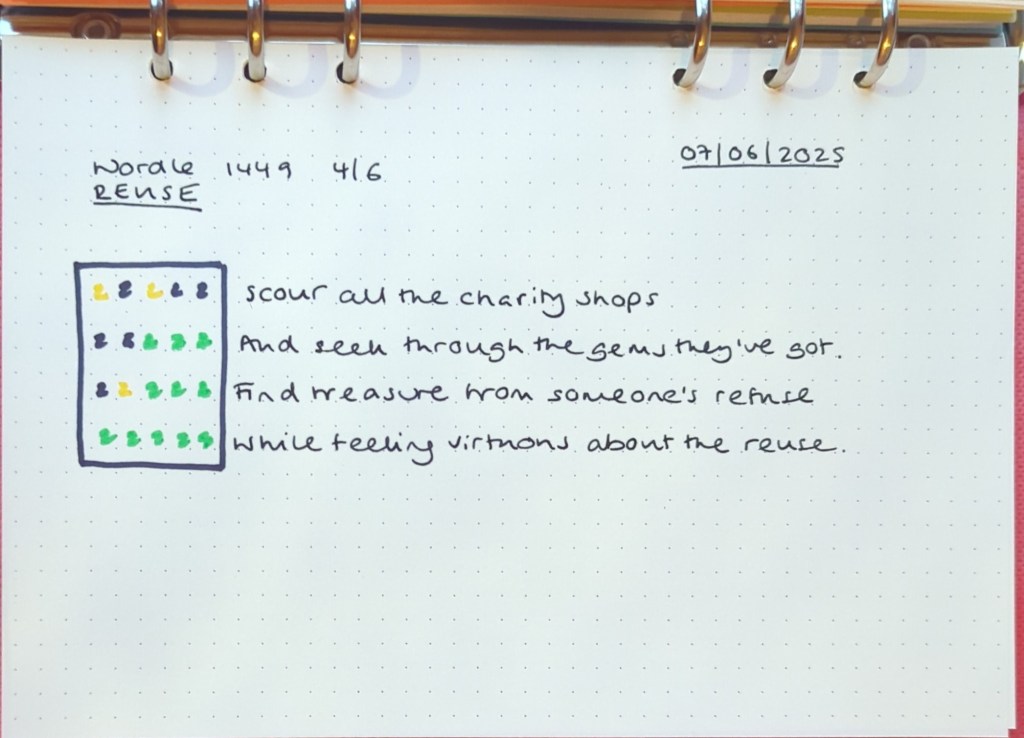 Wordle 1449 4/6
07/06/2025
REUSE
scour all the charity shops
And seek through the gems they've got.
Find treasure from someone's refuse
while feeling virtuous about the reuse.